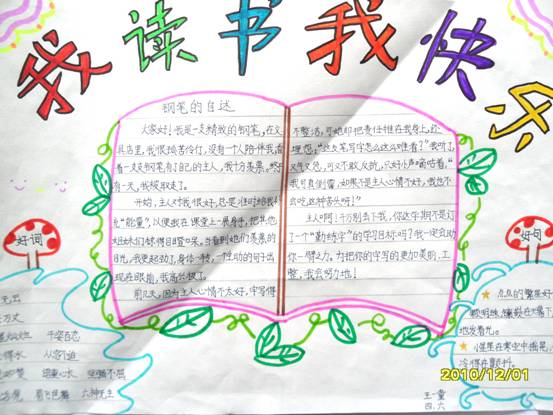 我读书我快乐
钢笔的自述
大家好!我是一支精致的钢笔,在文
具店里,我很孤苦伶仃,没有一个人陪伴我,看
着一支支钢笔有了自己的主人,我十分羡慕,终于
有一天,我被取走了。
开始,主人对我很好,总是准时给我补
充“能量”,以便我在课堂上一展身手,把其他
姐妹们都惊得目瞪口呆,当看到她们羡慕的
目光,我更起劲了,身体一扭,一个生动的句子出
现在眼前,我高兴极了。
前几天,因为主人心情不太好,字写得
不整洁,可她却把责任推在我身上,还
埋怨,“这支笔写字怎么这么难看?”我听了
又气又怨,可又不敢反抗,只好小声嘀咕着,“
我可真倒霉,如果不是主人心情不好,我也不
会吃这种苦头呀!”
主人啊!千万别丢下我,你这学期不是订
了一个“勤练字”的学习目标吗?我一定会助
你一臂之力,为把你的字写的更加美丽、工
整,我会努力地!
好词
千姿百态
从容不迫
六神无主
好句
点点的繁星好
般明珠,镶嵌在天幕下,
地发着光。
冷得在颤抖。
2010/12/01
王一童
四、六